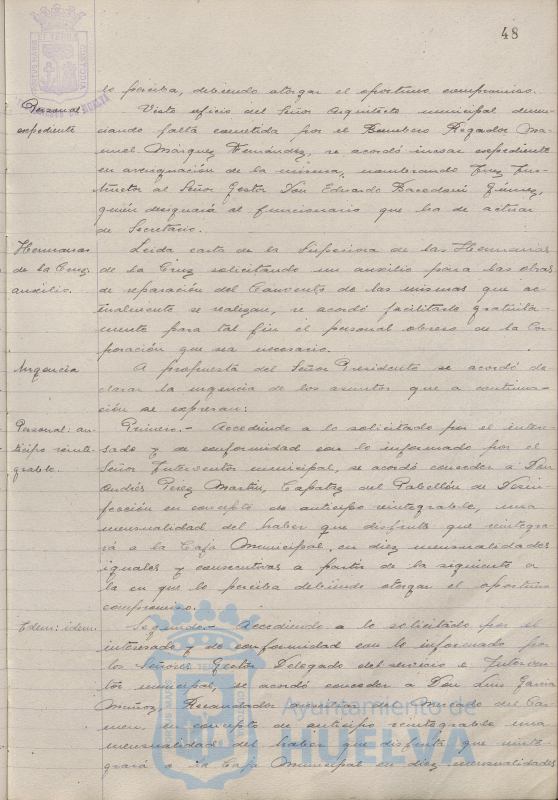 48
lo perciba, debiendo otorgar el oportuno compromiso.
Personal: expediente
Visto oficio del Señor Arquitecto municipal denun-
ciando falta cometida por el Bombero Regador Ma-
nuel Márquez Fernández, se acordó incoar expediente
en averiguación de la misma, nombrando Juez Ins-
tructor al Señor Gestor Don Eduardo Gómez,
quién designará al funcionario que ha de actuar
de Secretario.
Hermanas
de la Cruz
auxilio.
Leida carta de la Superiora de las Hermanas
de la Cruz solicitando un auxilio para las obras
de reparación del Convento de las mismas que ac-
tualmente se realizan, se acordó facilitarle gratuita-
mente para tal fin el personal obrero de la Cor-
poración que sea necesario.
Urgencia
A propuesta del Señor Presidente se acordó de-
clarar la urgencia de los asuntos que a continua-
ción se expresan:
Personal: an-
ticipo reinte-
grable.
Primero.- Accediendo a lo solicitado por el intere-
sado y de conformidad con lo informado por el
Señor Interventor municipal, se acordó conceder a Don
Andrés Pérez Martín, Capataz del Pabellón de Desin-
fección en concepto de anticipo reintegrable, una
mensualidad del haber que disfruta que reintegra-
rá a la Caja Municipal, en diez mensualidades
iguales y consecutivas a partir de la siguiente a
la en que lo perciba debiendo otorgar el oportuno
compromiso.
Idem: idem.
Segundo.- Accediendo a lo solicitado por el
interesado y de conformidad con lo informado por
los Señores Gestor Delegado del servicio e Interven-
tor municipal, se acordó conceder a Don Luis García
Muñoz Recaudador de arbitrios del Mercado del Car-
men, en concepto de anticipo reintegrable una
mensualidad del haber que disfruta que reinte-
grará a la Caja Municipal en diez mensualidades
Ayuntamiento de
HUELVA